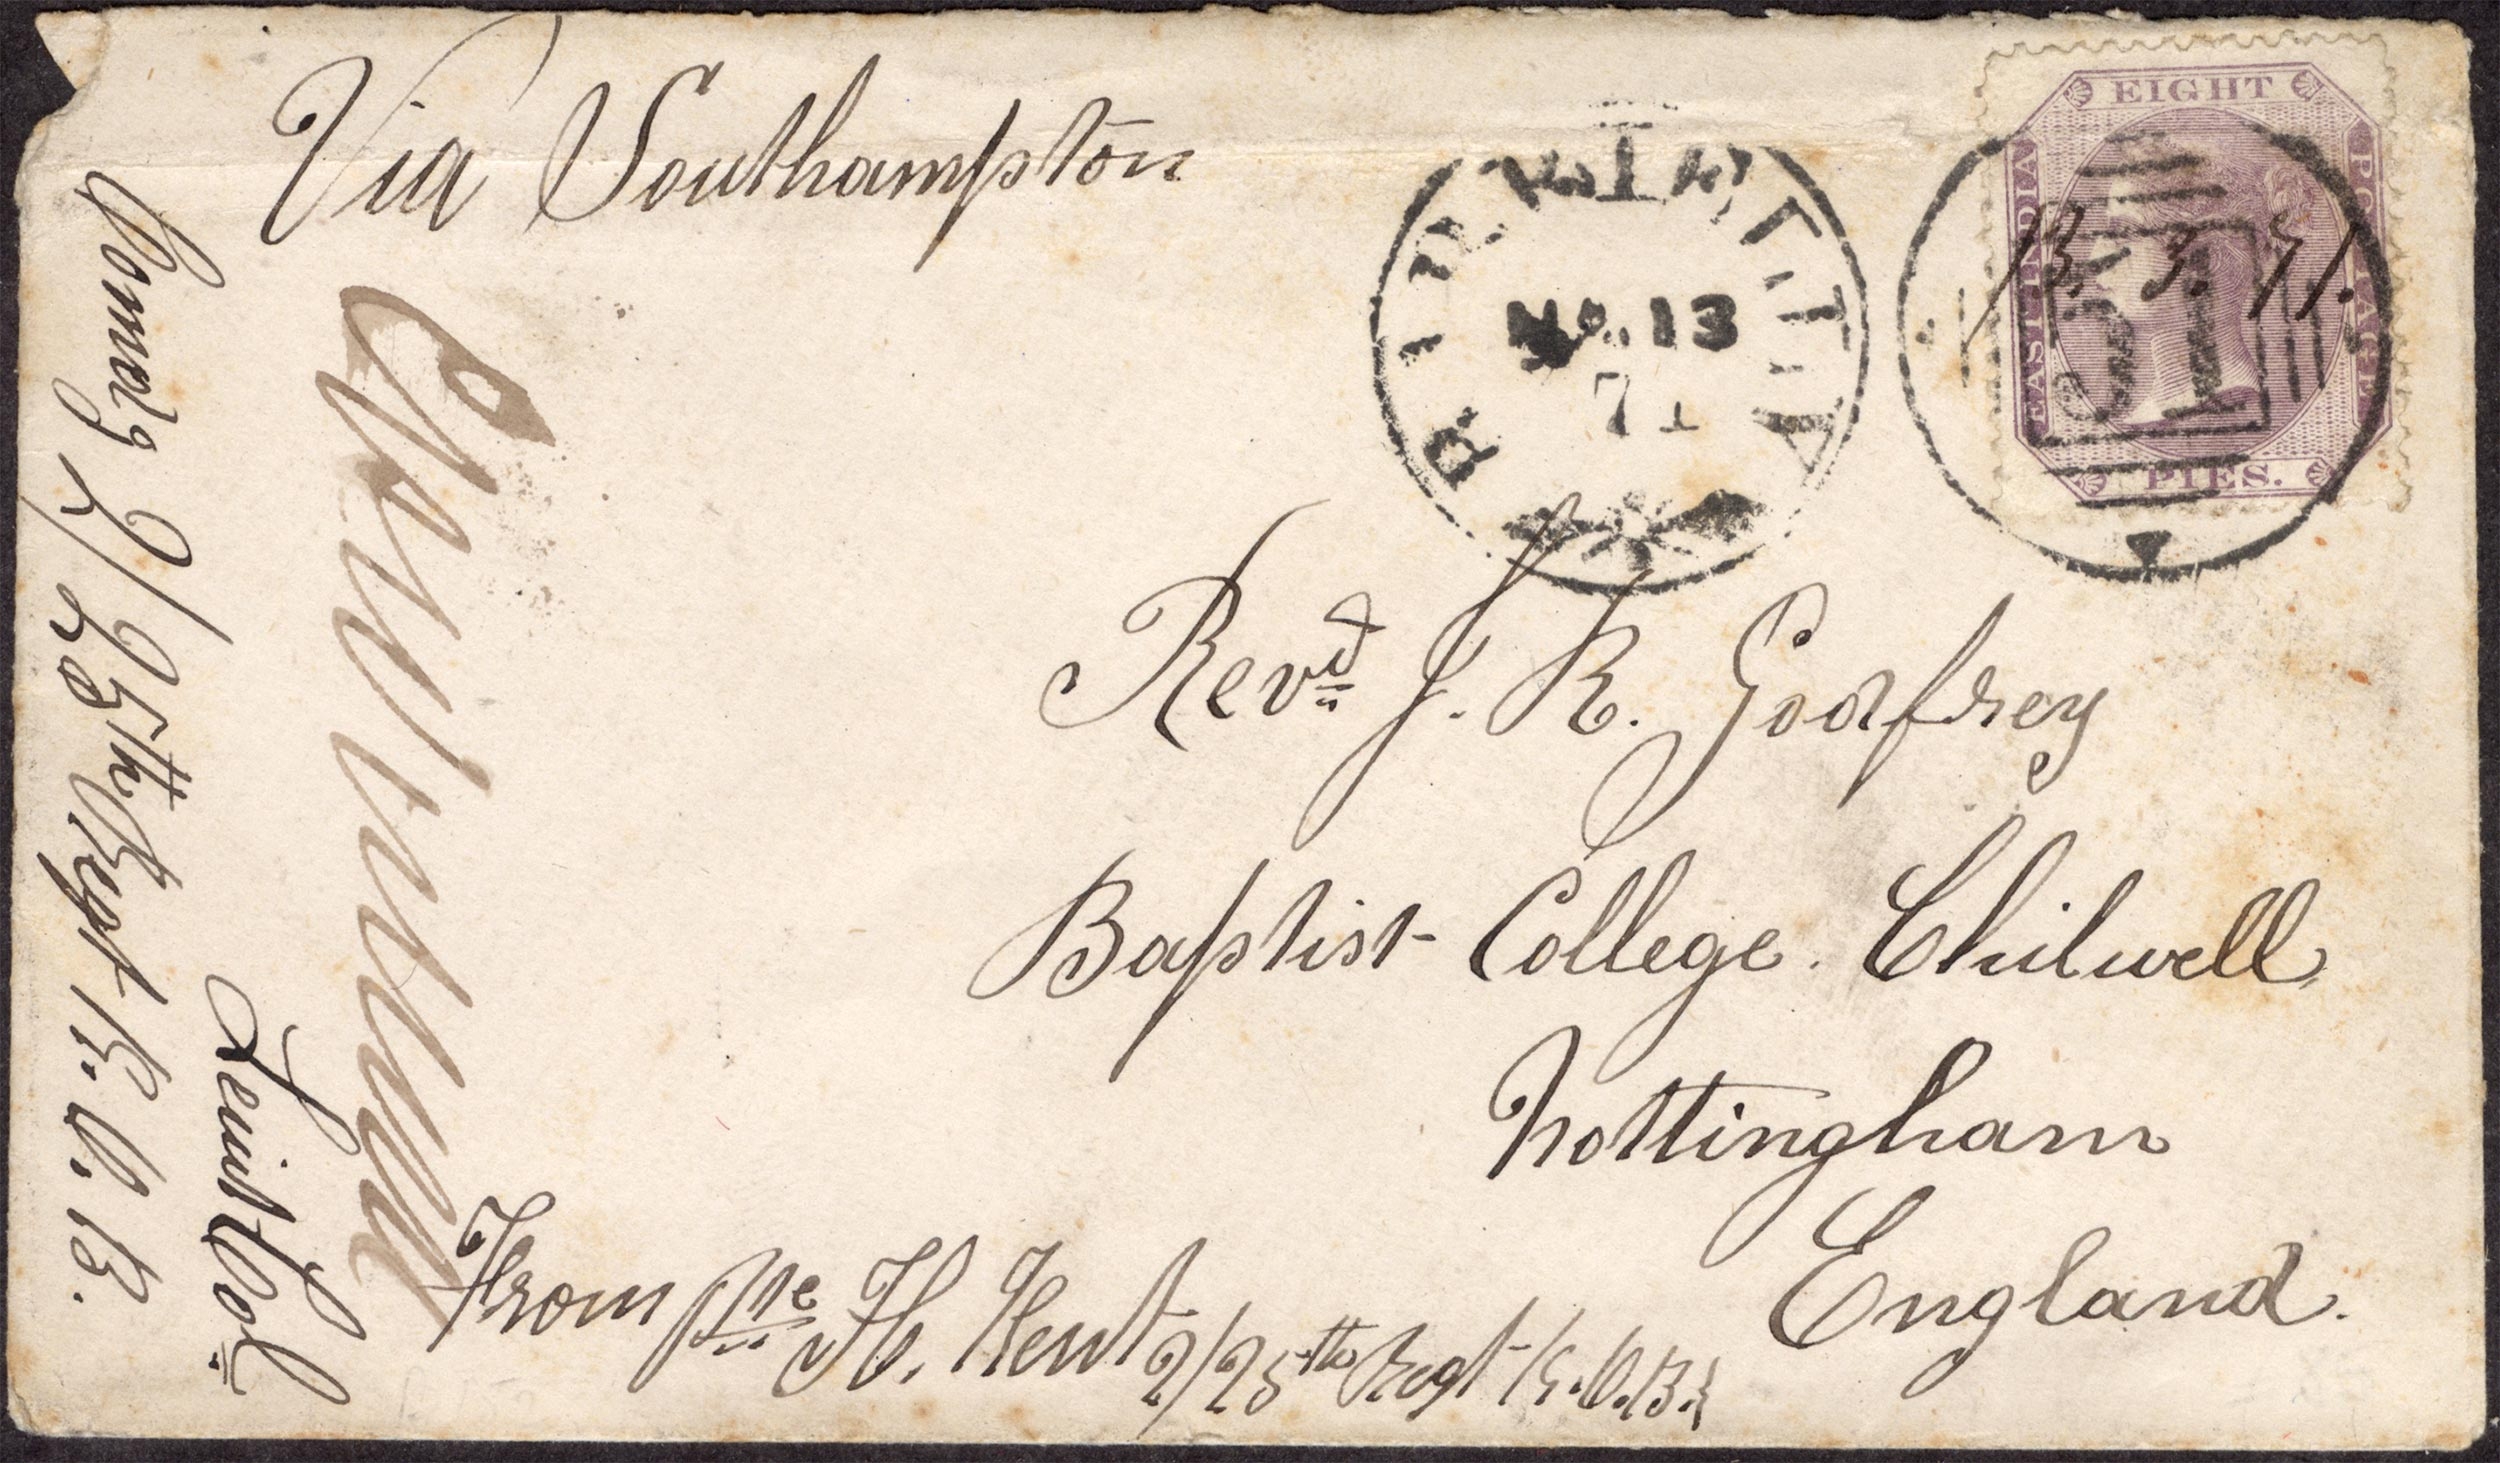 Via Southampton
MR. 13
71
EIGHT
EAST INDIA
POSTAGE
PIES.
13. 3. 71.
Revd J. R. Godfrey
Baptist College. Chilwell
Nottingham
England.
From Pte H. Kent 2/25th Regt K.O.B.
Lieut Col
2/25th Regt K.O.B.